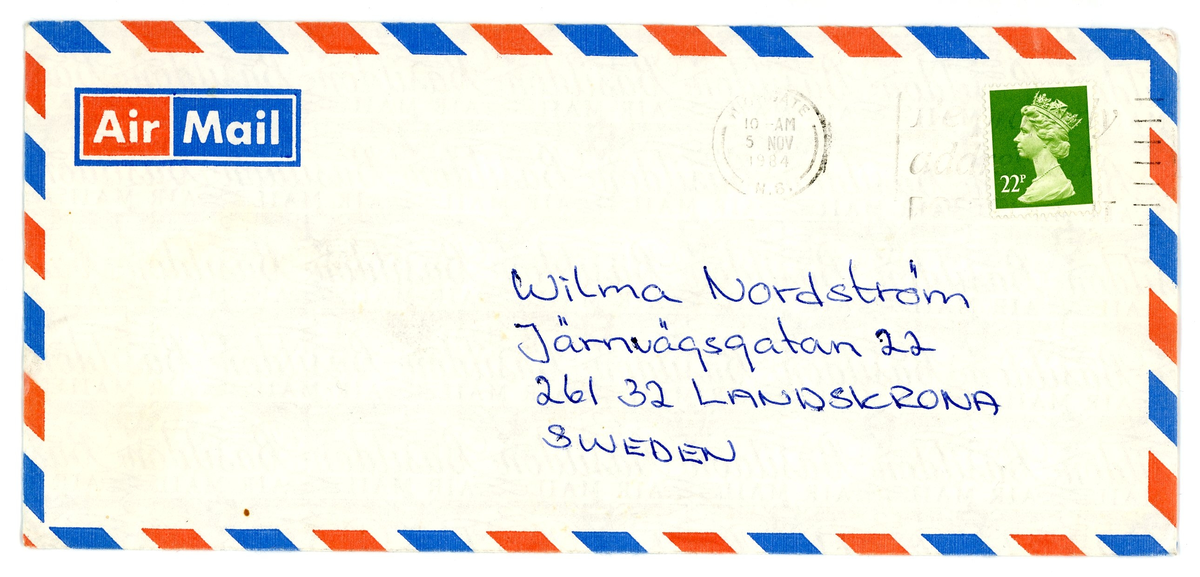 Air Mail
10 - AM
5 NOV
1984
22P
Wilma Nordström
Järnvägsgatan 22
261 32 LANDSKRONA
SWEDEN